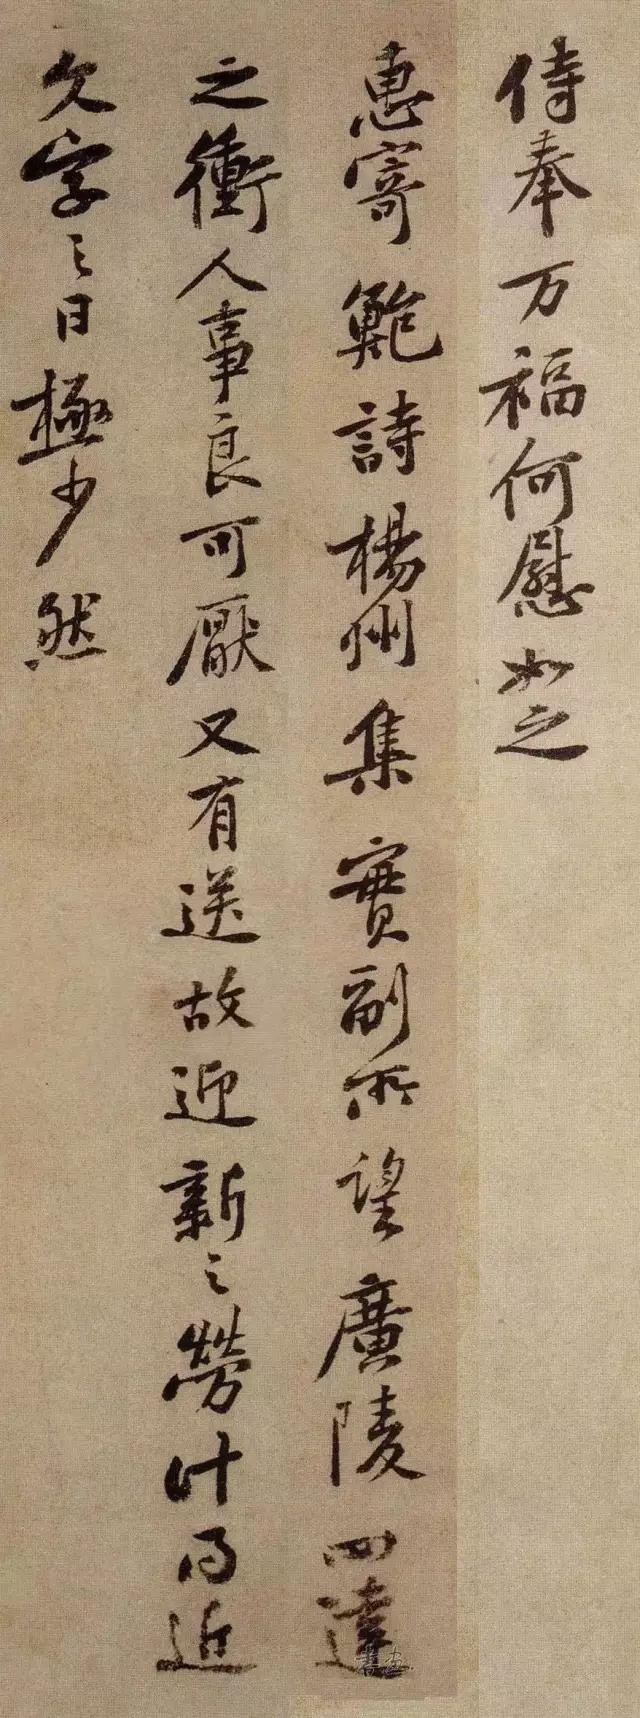 侍奉万福何慰如之
惠寄鲍詩楊州集實副所望廣陵四達
之衝人事良可厭又有送故迎新之勞計得近
文字之日極少然
書画